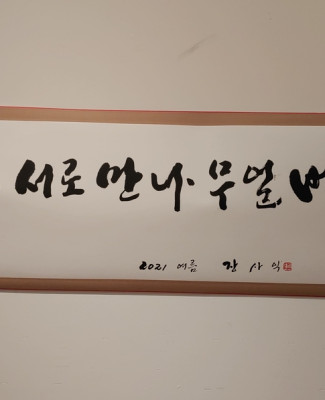 서로 만나 무얼
2021 여름 장사익